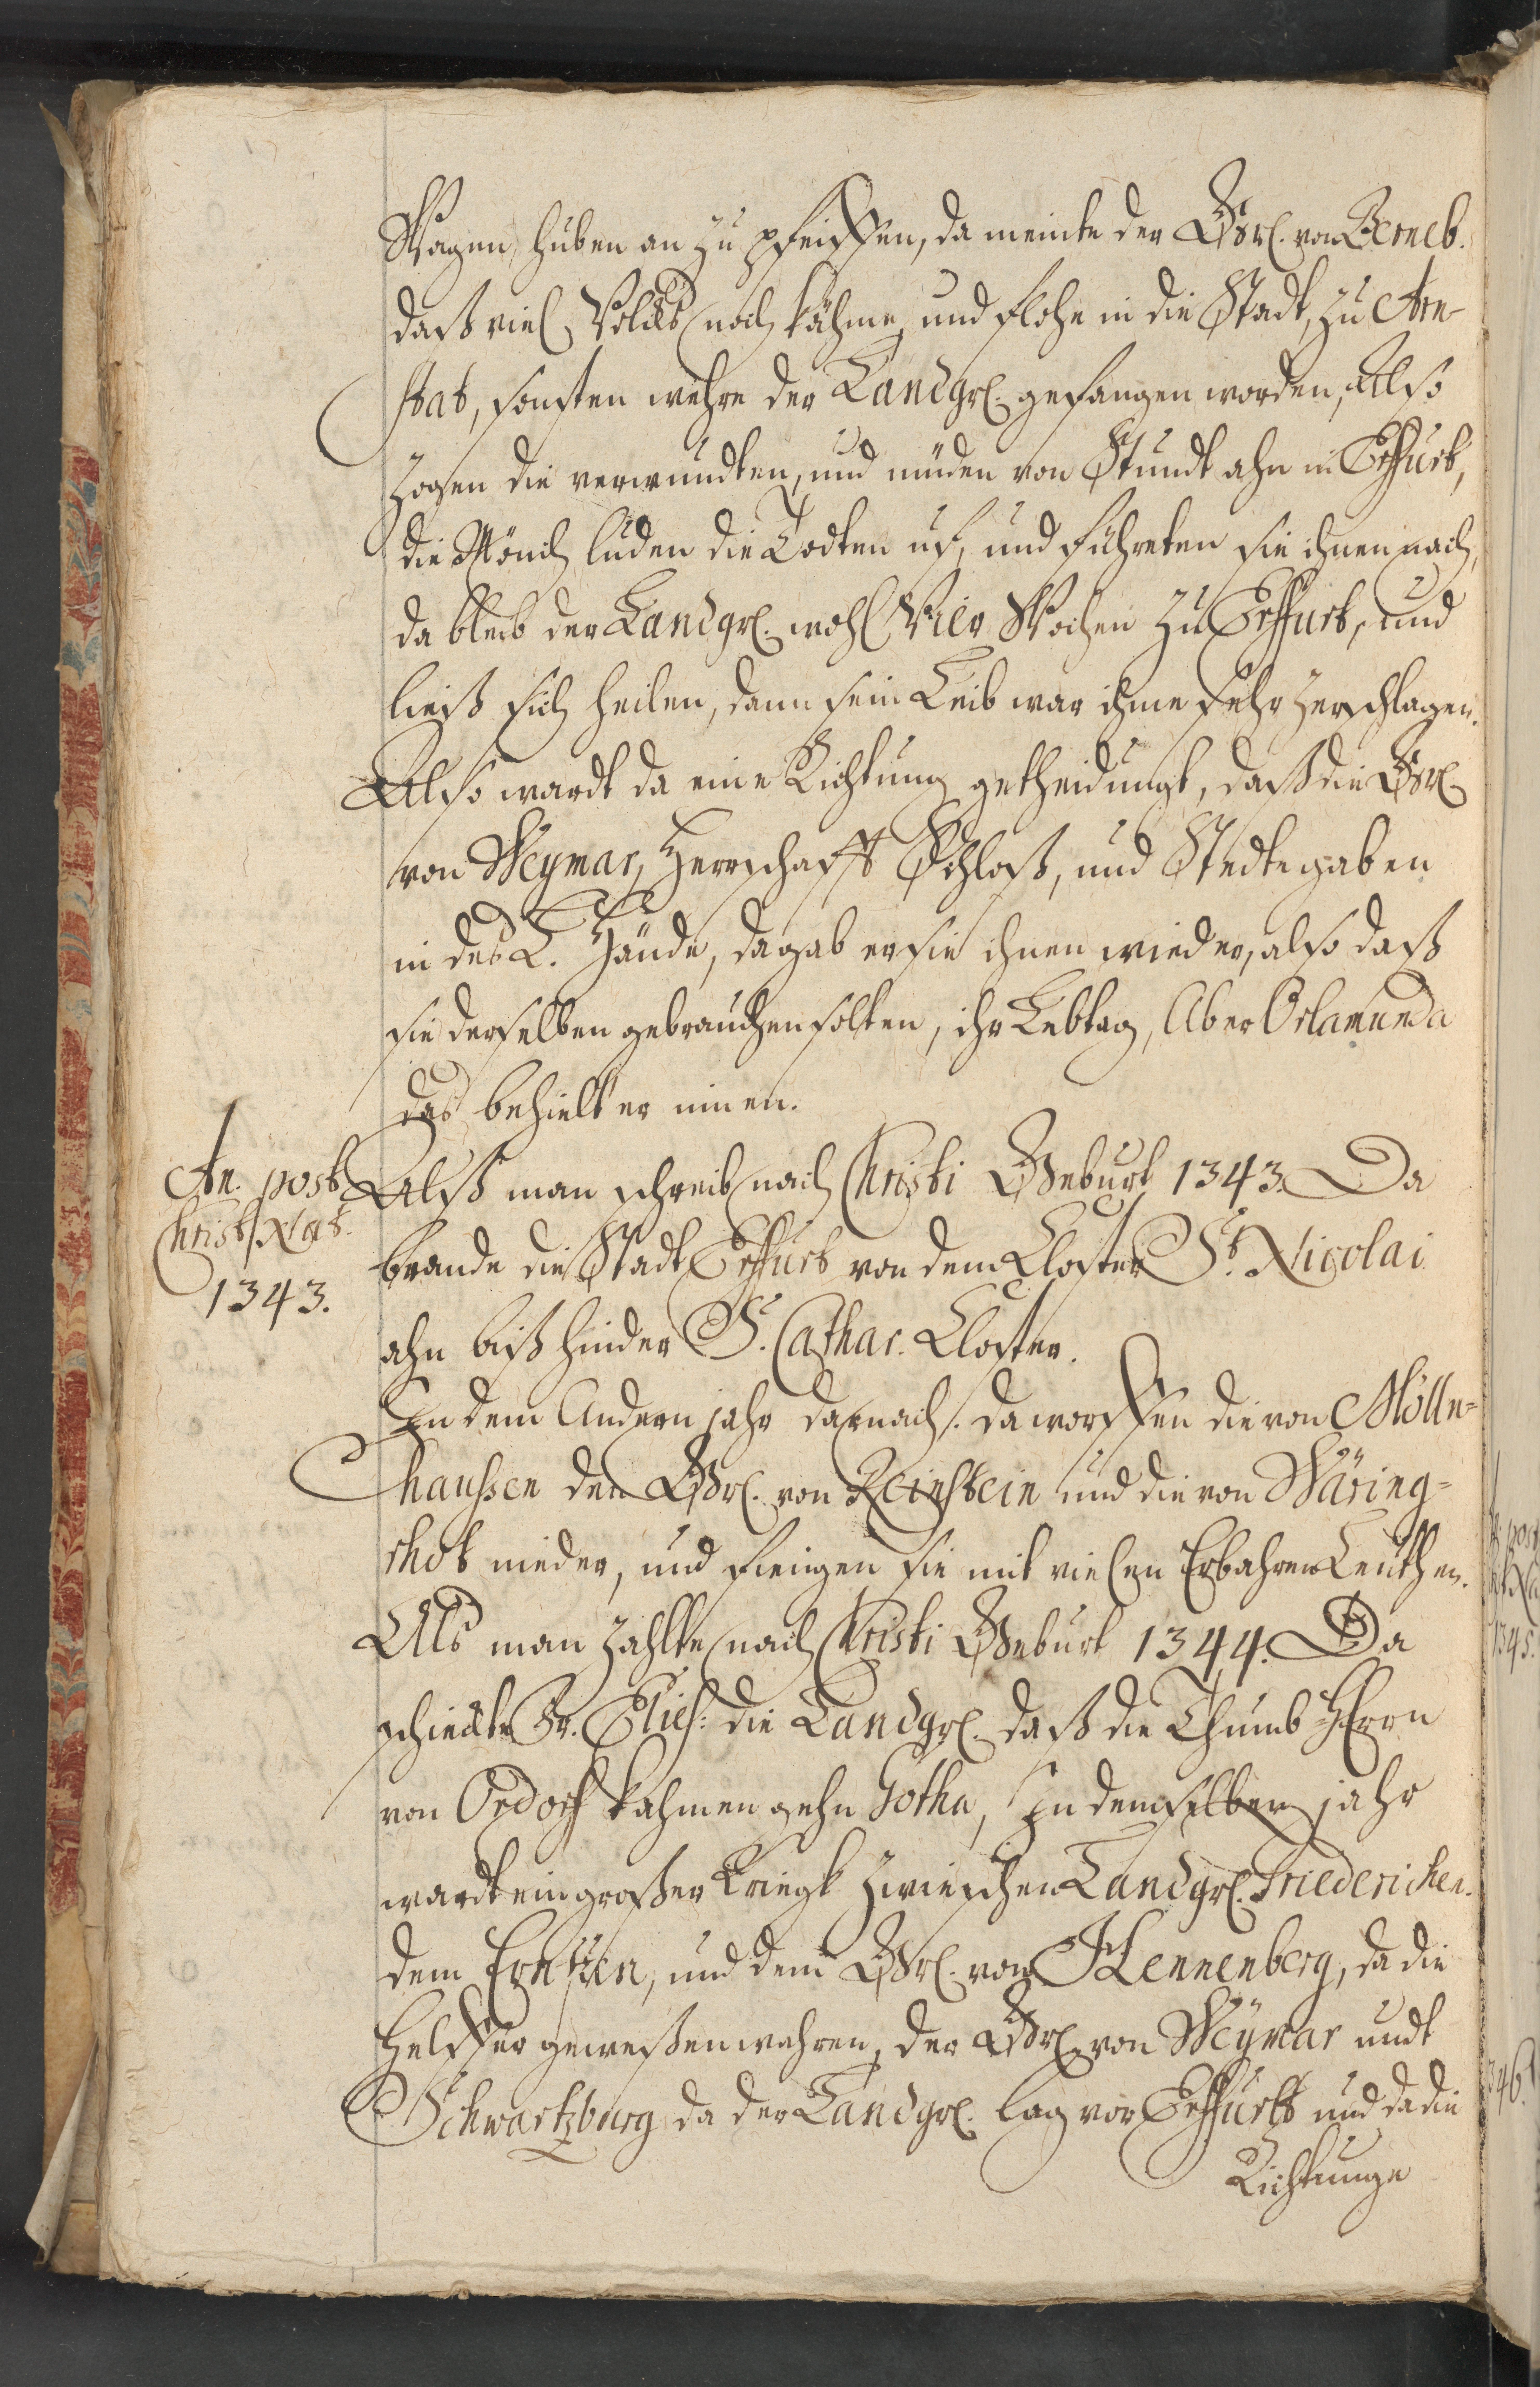 Wagen, huben an zu pfeiffen, da meinte der Gr̃l. von Berneb.
daß viel Volcks nach kähme, und flohe in die Stadt, zu Arn-
stat, sonsten wehre der Landgrl. gefangen worden, Also
zogen die verwundten, und müden von Stundt ahn in Erffurt,
die Mönch luden die Todten uf, und führeten sie ihnen nach,
da bleib der Landgrl. wohl Vier Wochen zu Erffurt, und
ließ sich heilen, dann sein Leib war ihme sehr zerschlagen.
Also wardt da eine Richtung getheidungt, daß die Grl.
von Weymar, Herrschafft Schloß, und Stedte gaben
in des L. Hände, da gab er sie ihnen wieder, also daß
sie derselben gebrauchen solten, ihr Lebtag, Aber Orlamunda
das behielt er innen.
An. post
Christ. Nat.
1343.
Alß man schreib nach Christi Geburt 1343. Da
brande die Stadt Erffurt von dem Closter St. Nicolai
ahn biß hinder S. Cathar. Closter.
In dem Andern jahr darnach. da worffen die von Mölln=
haussen den Grl. von Reinstein und die von Wäring=
rhot nieder, und fiengen sie mit vielen Erbahren Leuthen.
Als man zahlte nach Christi Geburt 1344. Da
schickte Fr. Elis: die Landgrl. daß die Thumb Herrn
von Ordorf kahmen gehn Gotha, In demselben jahr
wardt ein großer Kriegk zwieschen Landgrl. Friederichen.
dem Ernsten, und dem Grl. von Hennenberg, da die
Helffer geweßen wahren, der Grl. von Weymar undt
Schwartzburg da der Landgrl. lag vor Erffurtt und da die
Richtunge
1345.
346.